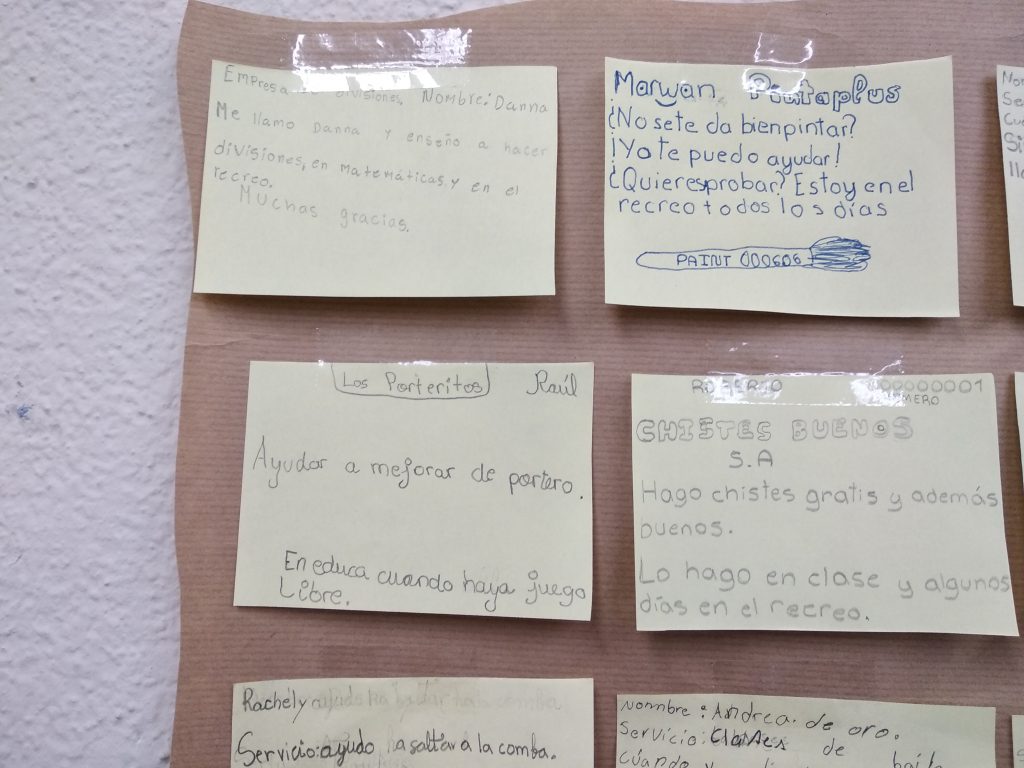 Empresa de divisiones. Nombre: Danna
Me llamo Danna y enseño a hacer
divisiones, en matemáticas y en el
recreo.
Muchas gracias.
Maryan Pintaplus
¿No sete da bienpintar?
¡Yo te puedo ayudar!
¿Quieresprobar? Estoy en el
recreo todos los días
PAINT 000606
Los Porteritos Raúl
Ayudar a mejorar de portero.
En educa cuando haya juego
Libre.
ROBERTO 00000001
NUMERO
CHISTES BUENOS
S.A
Hago chistes gratis y además
buenos.
Lo hago en clase y algunos
días en el recreo.
Rachely
Servicio: ayudo ha saltar a la comba.
Nonmbre: Andrea. de oro.
Servicio: clases de
No
Se
Cu
Si
lla